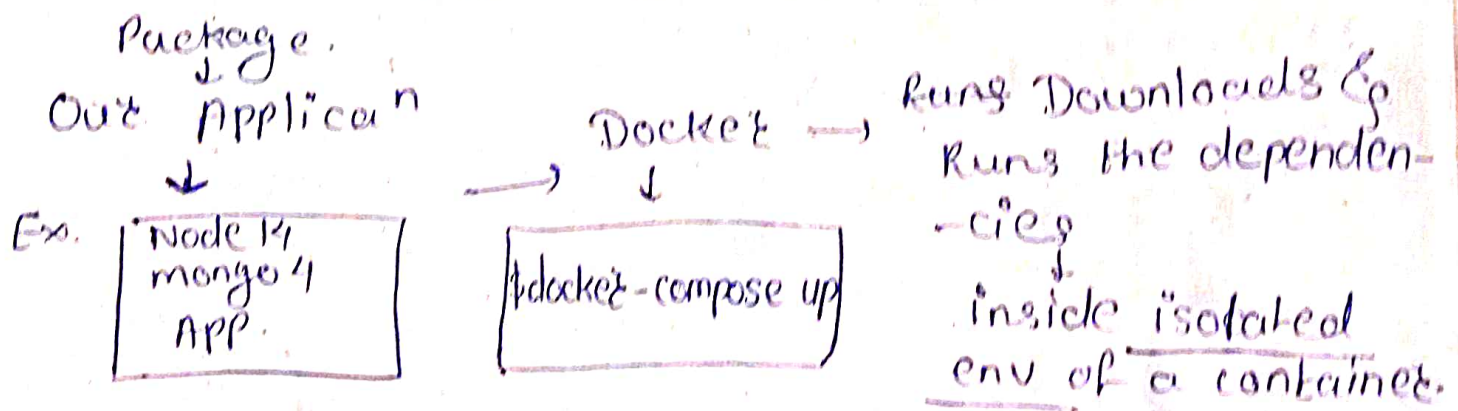 Package.
↓
Our Applicaⁿ
↓
Ex.
Node 14
mongo 4
APP.
→ Docker →
↓
$docker-compose up
Runs Downloads &
Runs the dependen-
-cies
↓
inside isolated
env of a container.